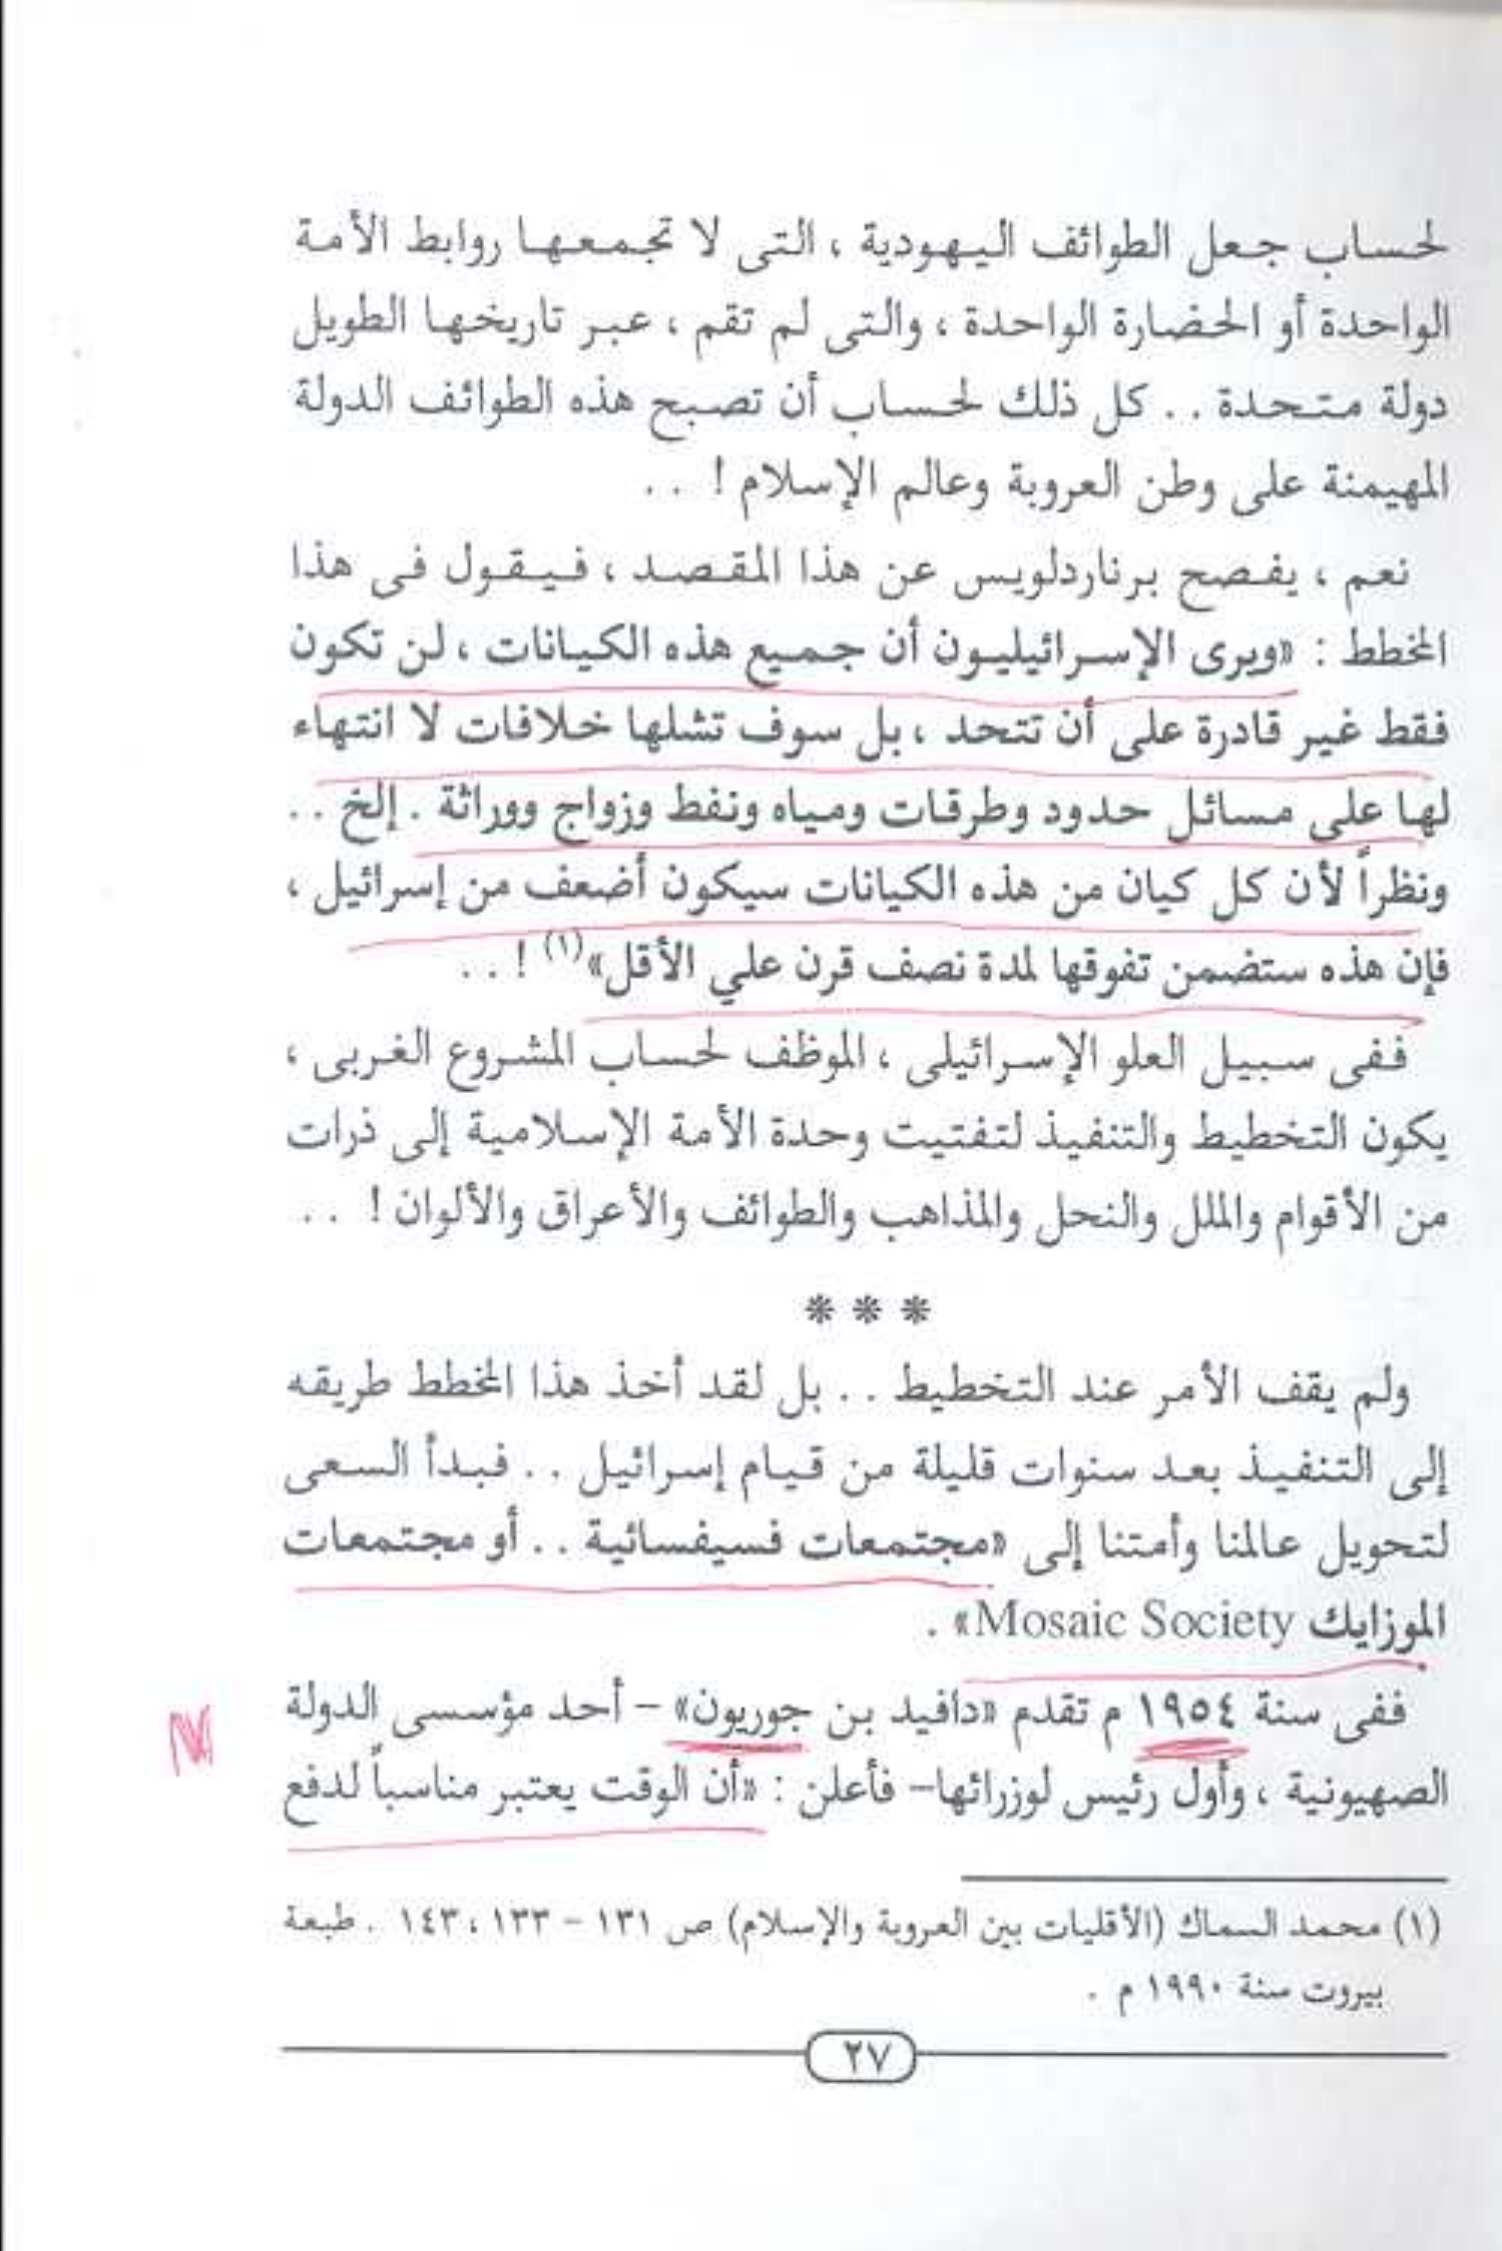 لحساب جعل الطوائف اليهودية ، التى لا تجمعها روابط الأمة
الواحدة أو الحضارة الواحدة ، والتى لم تقم ، عبر تاريخها الطويل
دولة متحدة . . كل ذلك لحساب أن تصبح هذه الطوائف الدولة
المهيمنة على وطن العروبة وعالم الإسلام ! . .
نعم ، يفصح برناردلويس عن هذا المقصد ، فيقول فى هذا
المخطط : «ويرى الإسرائيليون أن جميع هذه الكيانات ، لن تكون
فقط غير قادرة على أن تتحد ، بل سوف تشلها خلافات لا انتهاء
لها على مسائل حدود وطرقات ومياه ونفط وزواج ووراثة . إلخ . .
ونظراً لأن كل كيان من هذه الكيانات سيكون أضعف من إسرائيل ،
فإن هذه ستضمن تفوقها لمدة نصف قرن علي الأقل»(١) ! . .
ففى سبيل العلو الإسرائيلى ، الموظف لحساب المشروع الغربى ،
يكون التخطيط والتنفيذ لتفتيت وحدة الأمة الإسلامية إلى ذرات
من الأقوام والملل والنحل والمذاهب والطوائف والأعراق والألوان ! . .
* * *
ولم يقف الأمر عند التخطيط . . بل لقد أخذ هذا المخطط طريقه
إلى التنفيذ بعد سنوات قليلة من قيام إسرائيل . . فبدأ السعى
لتحويل عالمنا وأمتنا إلى «مجتمعات فسيفسائية . . أو مجتمعات
الموزايك Mosaic Society» .
ففى سنة ١٩٥٤ م تقدم «دافيد بن جوريون» – أحد مؤسسى الدولة
الصهيونية ، وأول رئيس لوزرائها– فأعلن : «أن الوقت يعتبر مناسباً لدفع
(١) محمد السماك (الأقليات بين العروبة والإسلام) ص ١٣١ – ١٣٣ ، ١٤٣ . طبعة
بيروت سنة ١٩٩٠ م .
٢٧